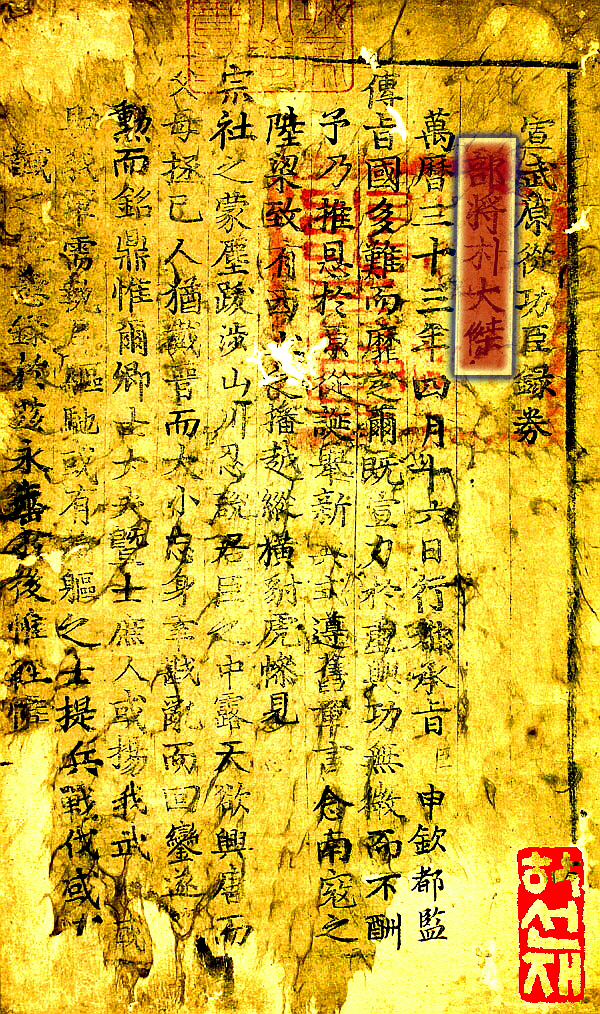 宣武原從功臣錄券
部將朴大傑
萬曆三十三年四月十六日行承旨臣申欽都監
傳旨國多難而靡定爾旣宣力於重興功無微而不酬
予乃推恩於原從誕擧新典式遵舊章言念南寇之
陸梁致有西播越縱橫豺虎慘見
宗社之蒙塵跋涉山川忍說君臣之中露天欲興唐而
父母拯己人猶戴晋而大小忘身幸戡亂而回鑾遂
勳而銘鼎惟爾卿士大夫曁士庶人或揚我武或
軍需驅馳或有軀之士提兵戰伐或
誠悉錄於玆永垂於後惟
학선재